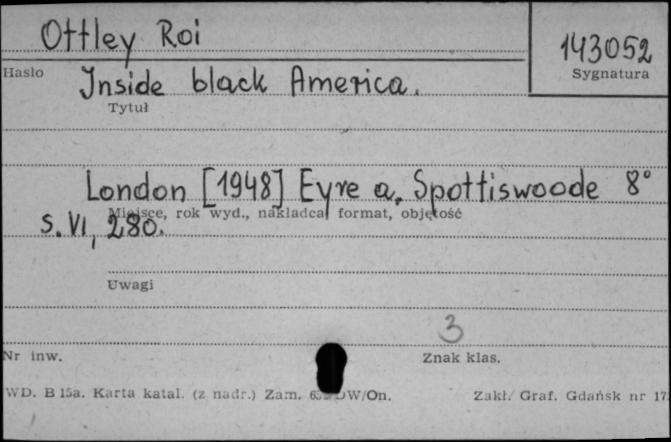 Ottley Roi
143052
Hasło
Sygnatura
Inside black America.
Tytuł
London [1948] Eyre a. Spottiswoode 8°
Miejsce, rok wyd., nakładca, format, objętość
s. VI, 280.
Uwagi
3
Nr inw.
Znak klas.
WD. B 15a. Karta katal. (z nadr.) Zam. DW/On.
Zakł. Graf. Gdańsk nr 17